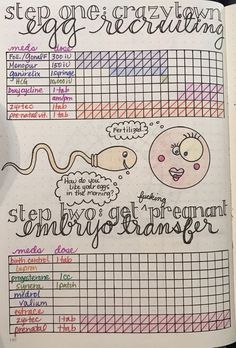 step one: crazytown
egg recruiting
meds dose
Foll./Gonalf 300 iu
Menopur 150 iu
Ganirelix 1 syringe
HCG 10,000 iu
Doxycycline 1 tab
am/pm
zyrtec 1 tab
prenatal vit. 1 tab
Fertilized.
How do you
like your eggs
in the morning?
fucking
step two: get ^ pregnant
embryo transfer
meds dose
birth control 1 tab
Lupron
progesterone 1cc
Synera 1 patch
medrol
valium
estrace
zyrtec 1 tab
prenatal 1 tab